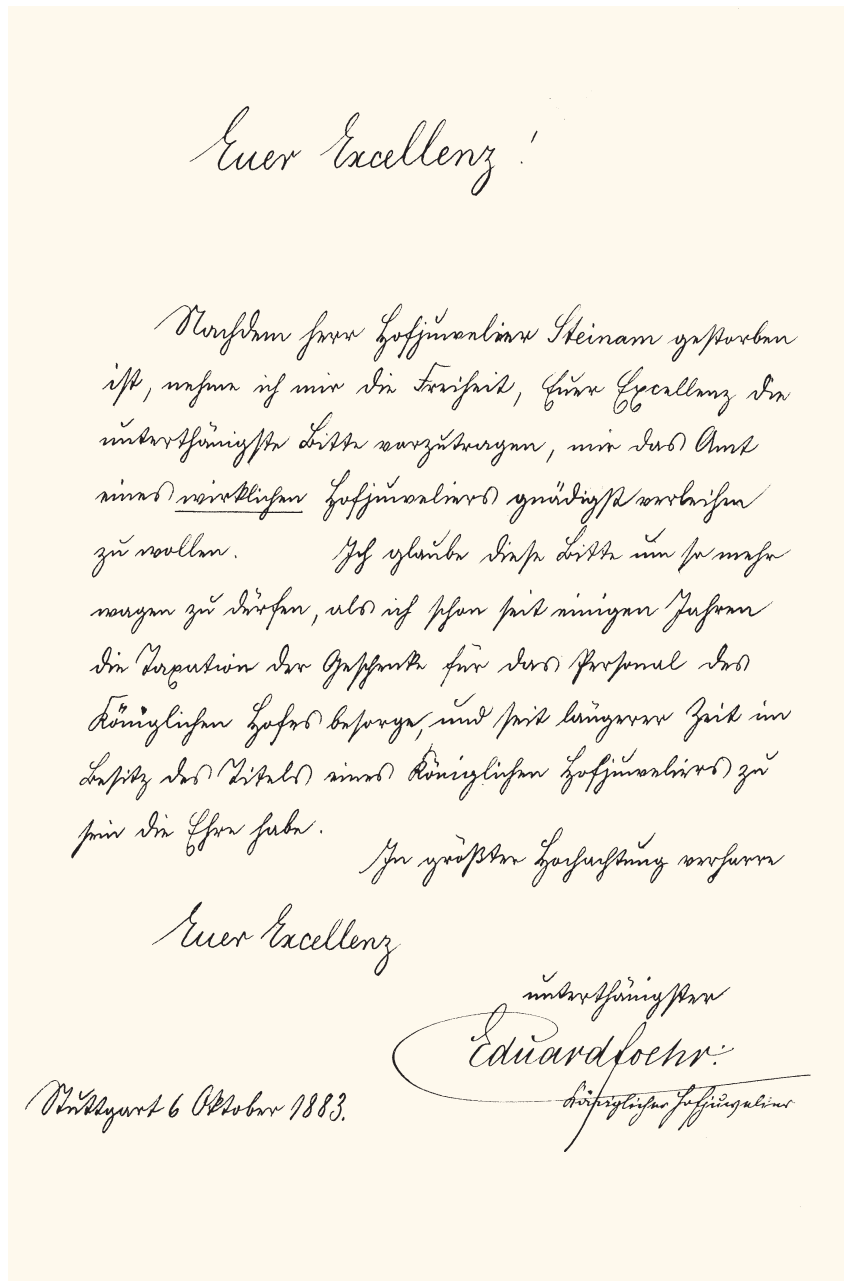 Euer Excellenz!
Nachdem Herr Hofjuwelier Steinam gestorben
ist, nehme ich mir die Freiheit, Euer Excellenz die
unterthänigste Bitte vorzutragen, mir das Amt
eines wirklichen Hofjuweliers gnädigst verleihen
zu wollen. Ich glaube diese Bitte um so mehr
wagen zu dürfen, als ich schon seit einigen Jahren
die Taxation der Geschenke für das Personal des
Königlichen Hofes besorge, und seit längerer Zeit im
Besitz des Titels eines Königlichen Hofjuweliers zu
sein die Ehre habe.
In größter Hochachtung verharre
Euer Excellenz
unterthänigster
Eduard Foehr.
Königlicher Hofjuwelier
Stuttgart 6 Oktober 1883.